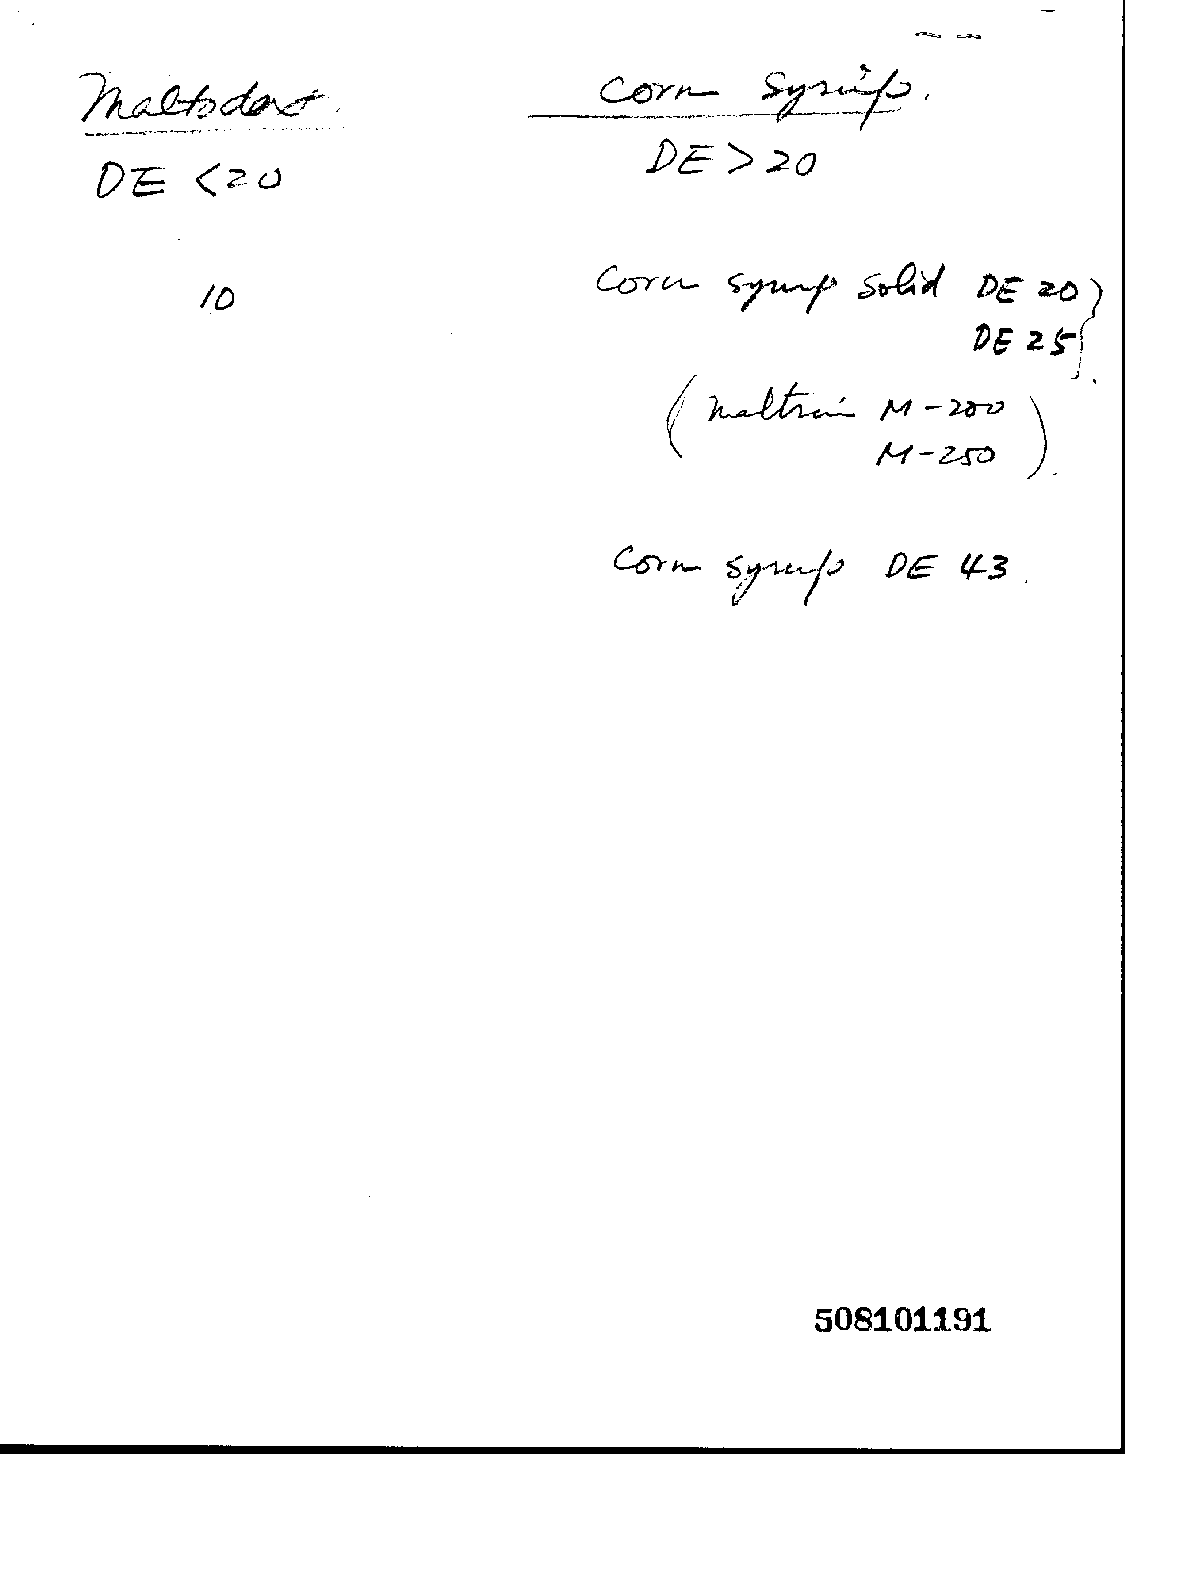 Maltodext.
DE <20
10
Corn Syrup.
DE > 20
Corn syrup solid DE 20
DE 25
(Maltrin M-200
M-250)
Corn syrup DE 43
508101191